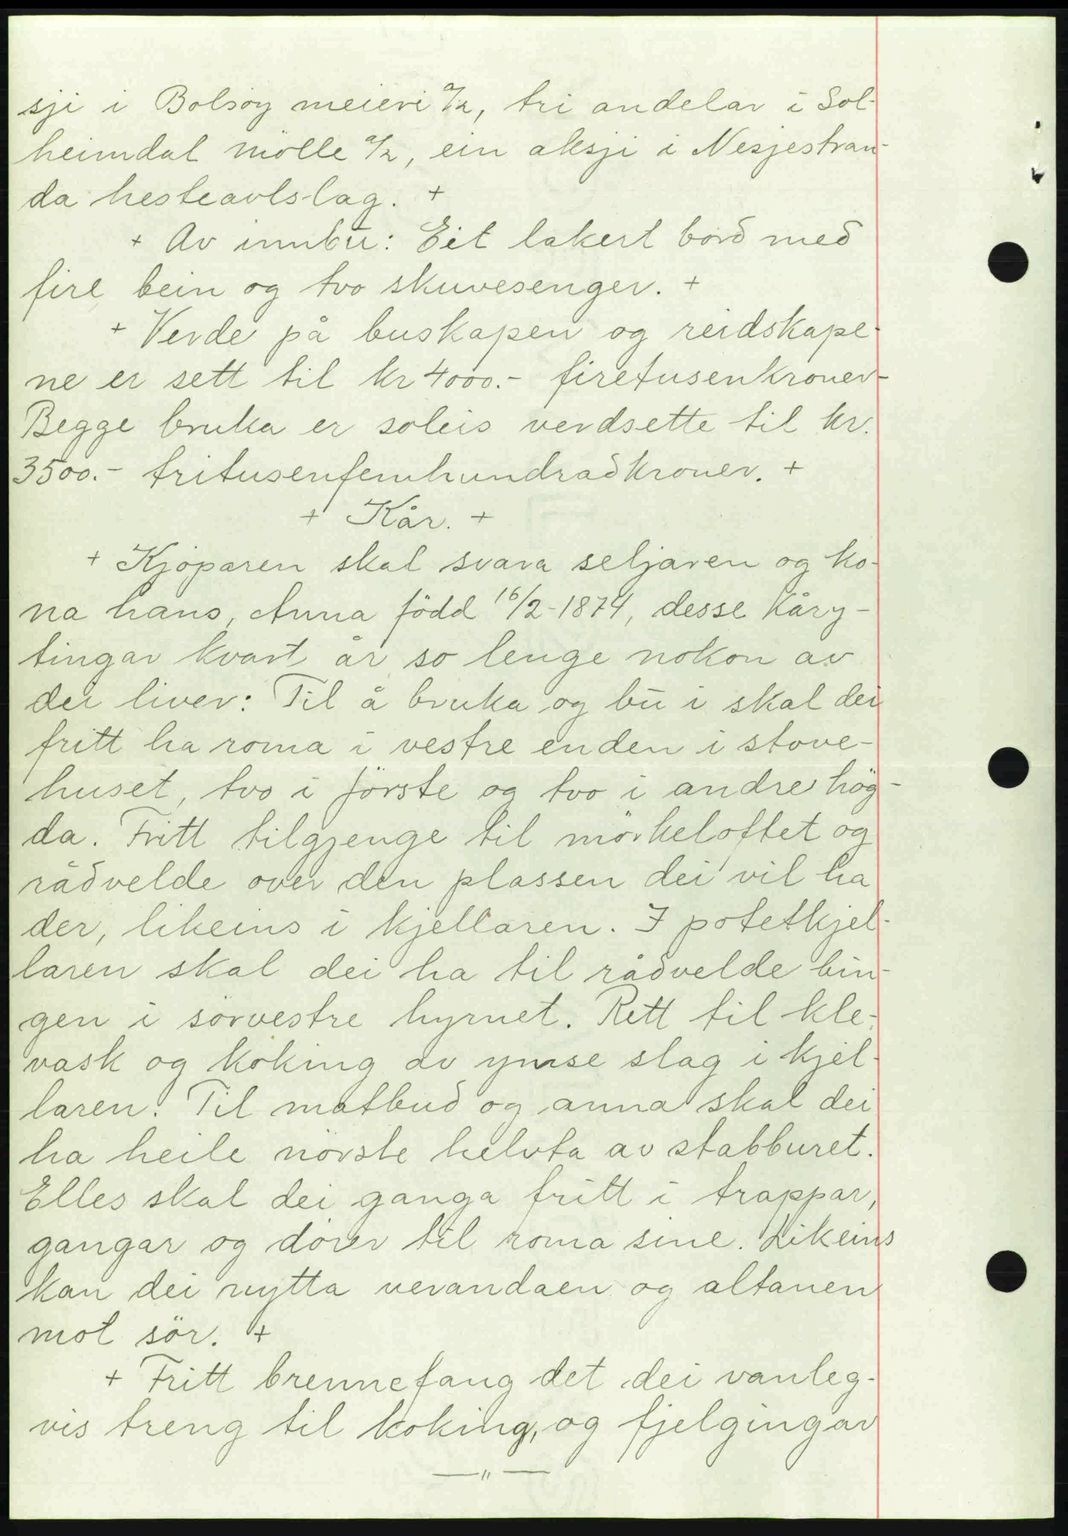 sji i Bolsøy meieri a/l, tri andelar i Sol-
heimdal mölle a/l, ein aksji i Nesjestran-
da hesteavlslag. +
+ Av innbu: Eit lakert bord med
fire bein og tvo skuvesenger. +
+ Verde på buskapen og reidskape-
ne er sett til kr 4000.- firetusenkroner-
Begge bruka er soleis verdsette til kr.
3500.- tritusenfemhundradkroner. +
+ Kår. +
+ Kjøparen skal svara seljaren og ko-
na hans, Anna född 16/2-1874, desse kåry-
tingar kvart år so lenge nokon av
dei liver: Til å bruka og bu i skal dei
fritt ha roma i vestre enden i stove-
huset, tvo i förste og tvo i andre hög-
da. Fritt tilgjenge til mörkeloftet og
rådvelde over den plassen dei vil ha
der, likeins i kjellaren. I potetkjel-
laren skal dei ha til rådvelde bin-
gen i sörvestre hyrnet. Rett til kle-
vask og koking av ymse slag i kjel-
laren. Til matbud og anna skal dei
ha heile nörste helvta av stabburet.
Elles skal dei ganga fritt i trappar,
gangar og dörer til roma sine. Likeins
kan dei nytta verandaen og altanen
mot sör. +
+ Fritt brennefang det dei vanleg-
vis treng til koking, og fjelgingar
— " —